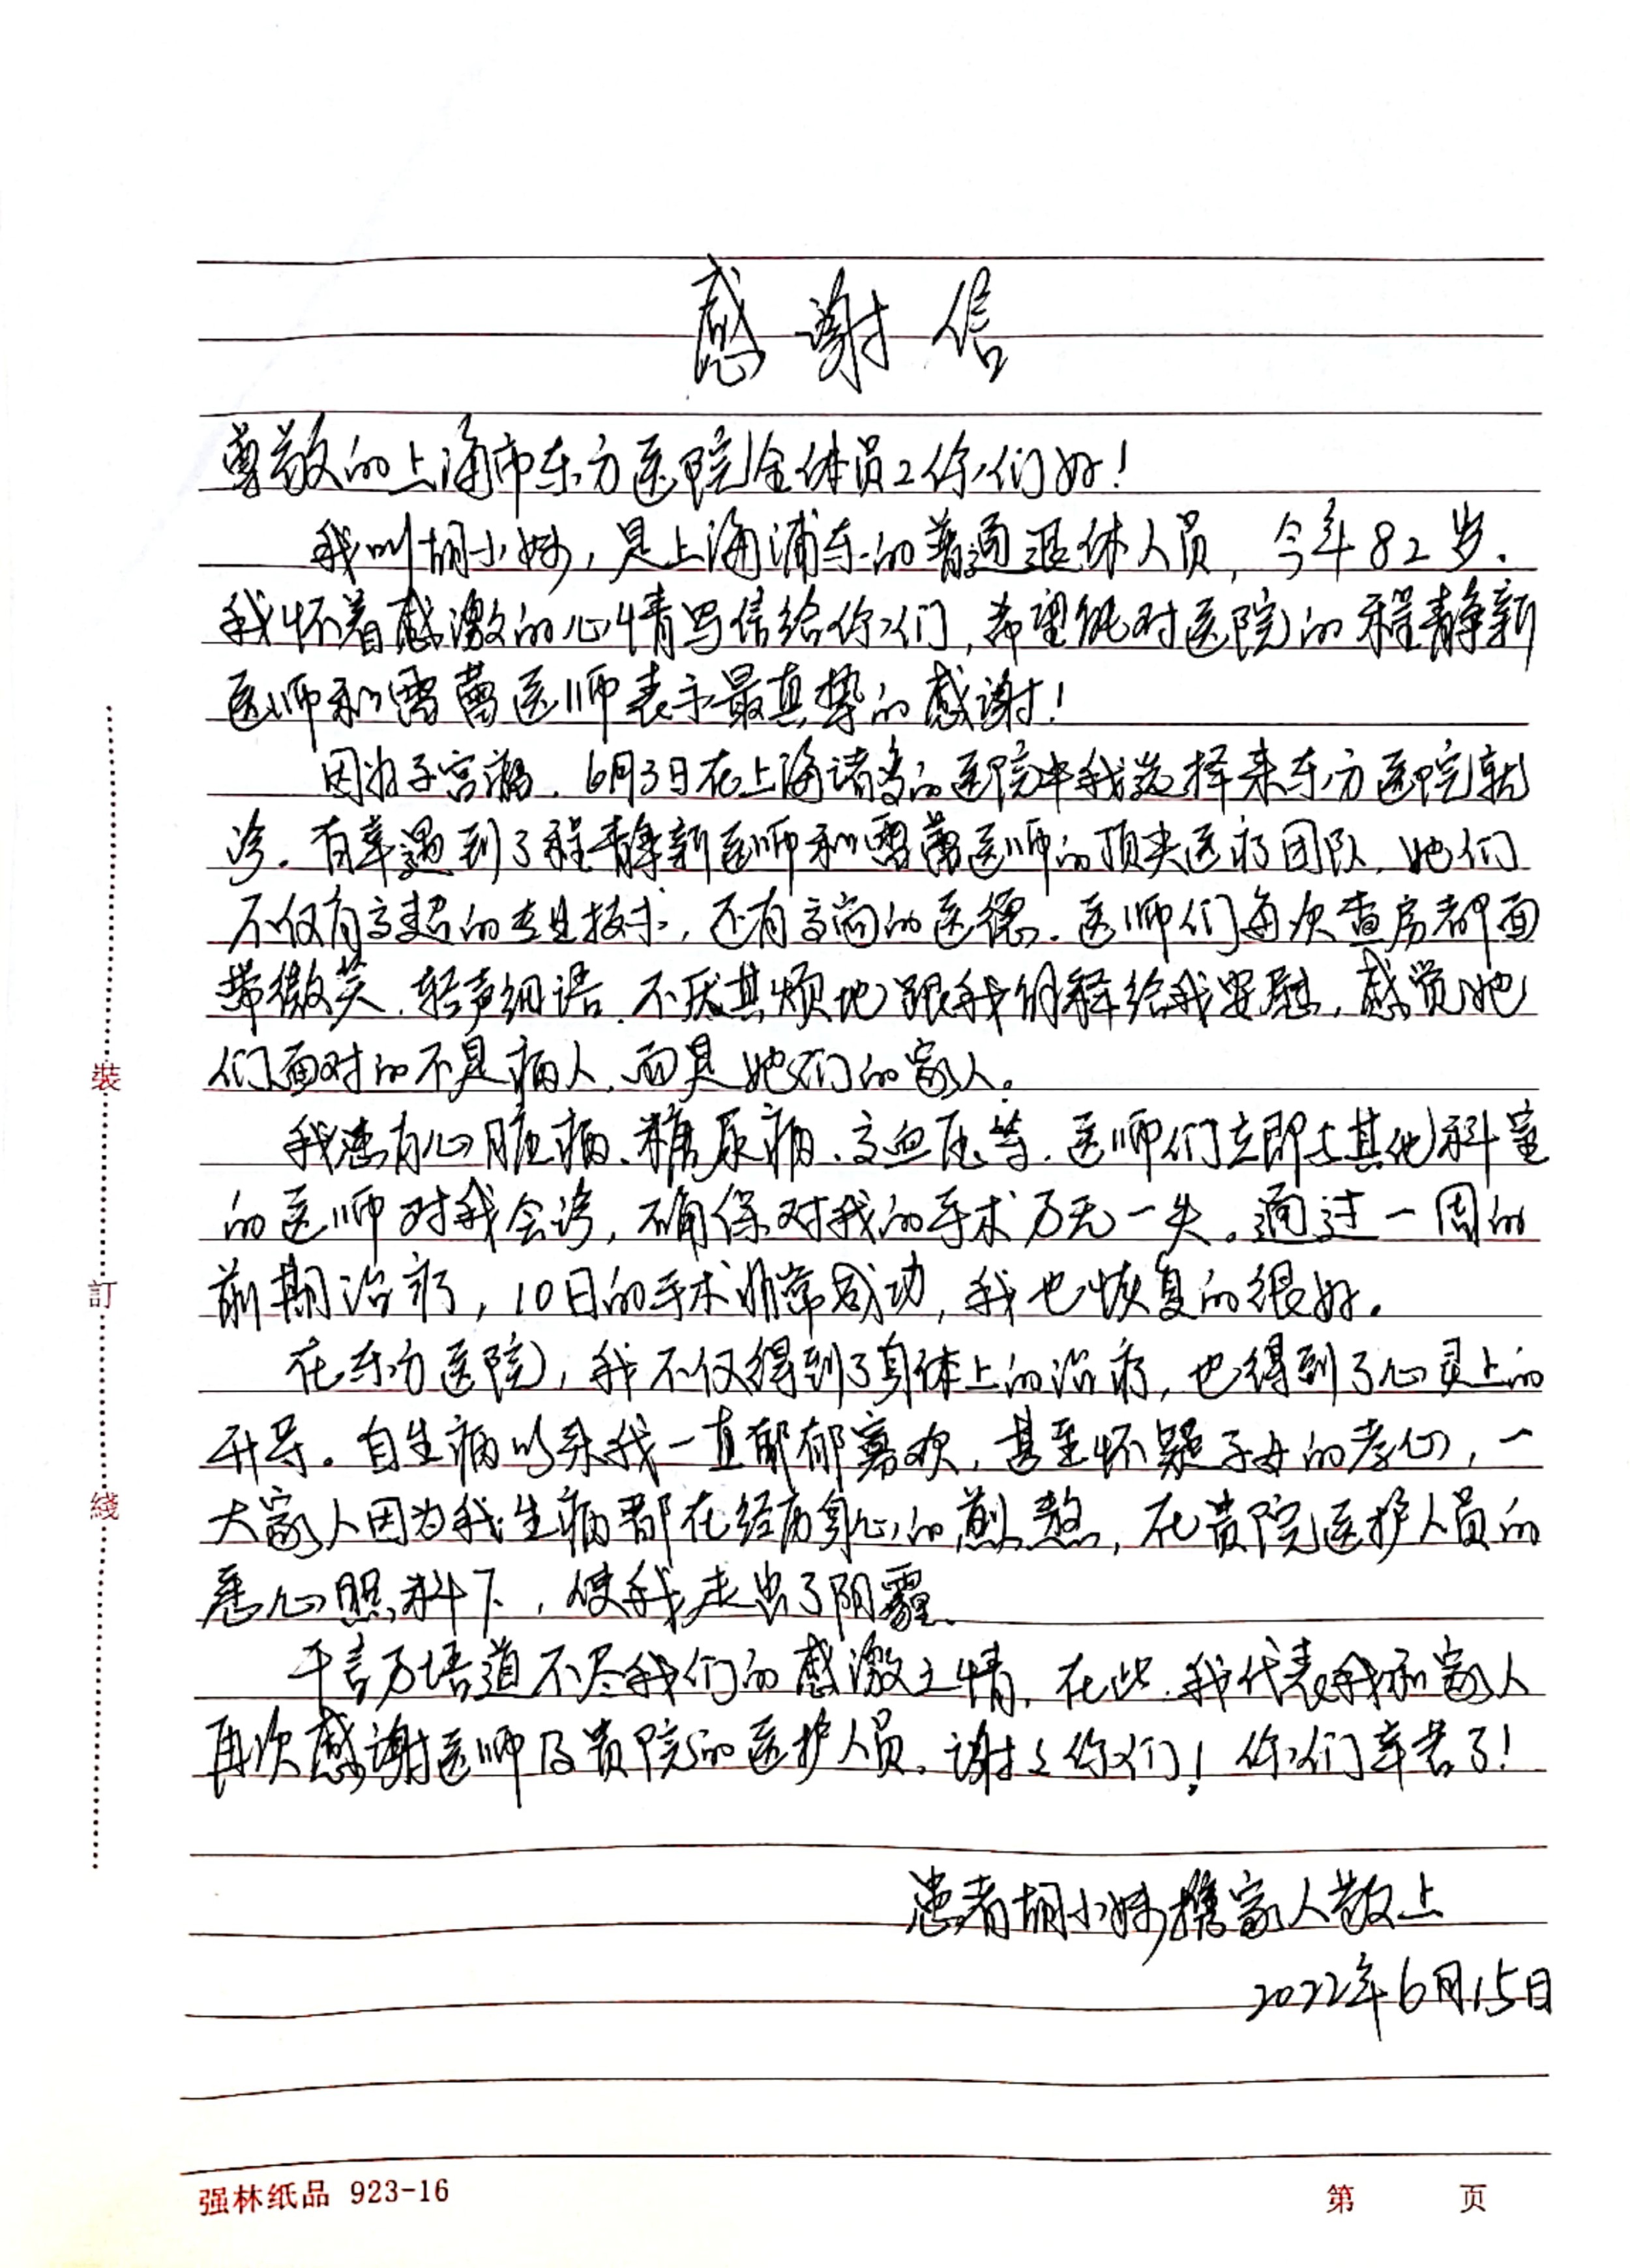 感谢信
尊敬的上海市东方医院全体员工你们好！
我叫胡小妹，是上海浦东的普通退休人员，今年82岁。
我怀着感激的心情写信给你们，希望能对医院的程静新
医师和雷蕾医师表示最真挚的感谢！
因为子宫癌，6月3日在上海诸多的医院中我选择来东方医院就
诊。有幸遇到了程静新医师和雷蕾医师的顶尖医疗团队，她们
不仅有高超的专业技术，还有高尚的医德。医师们每次查房都面
带微笑、轻声细语、不厌其烦地跟我解释给我安慰，感觉她
们面对的不是病人，而是她们的家人。
我患有心脏病、糖尿病、高血压等，医师们立即与其他科室
的医师对我会诊，确保对我的手术万无一失。通过一周的
前期治疗，10日的手术非常成功，我也恢复的很好。
在东方医院，我不仅得到了身体上的治疗，也得到了心灵上的
开导。自生病以来我一直郁郁寡欢，甚至怀疑子女的孝心，一
大家人因为我生病都在经历身心的煎熬，在贵院医护人员的
悉心照料下，使我走出了阴霾。
千言万语道不尽我们的感激之情，在此，我代表我和家人
再次感谢医师及贵院的医护人员。谢谢你们！你们辛苦了！
患者胡小妹携家人敬上
2022年6月15日
裝
訂
綫
强林纸品 923-16
第 页